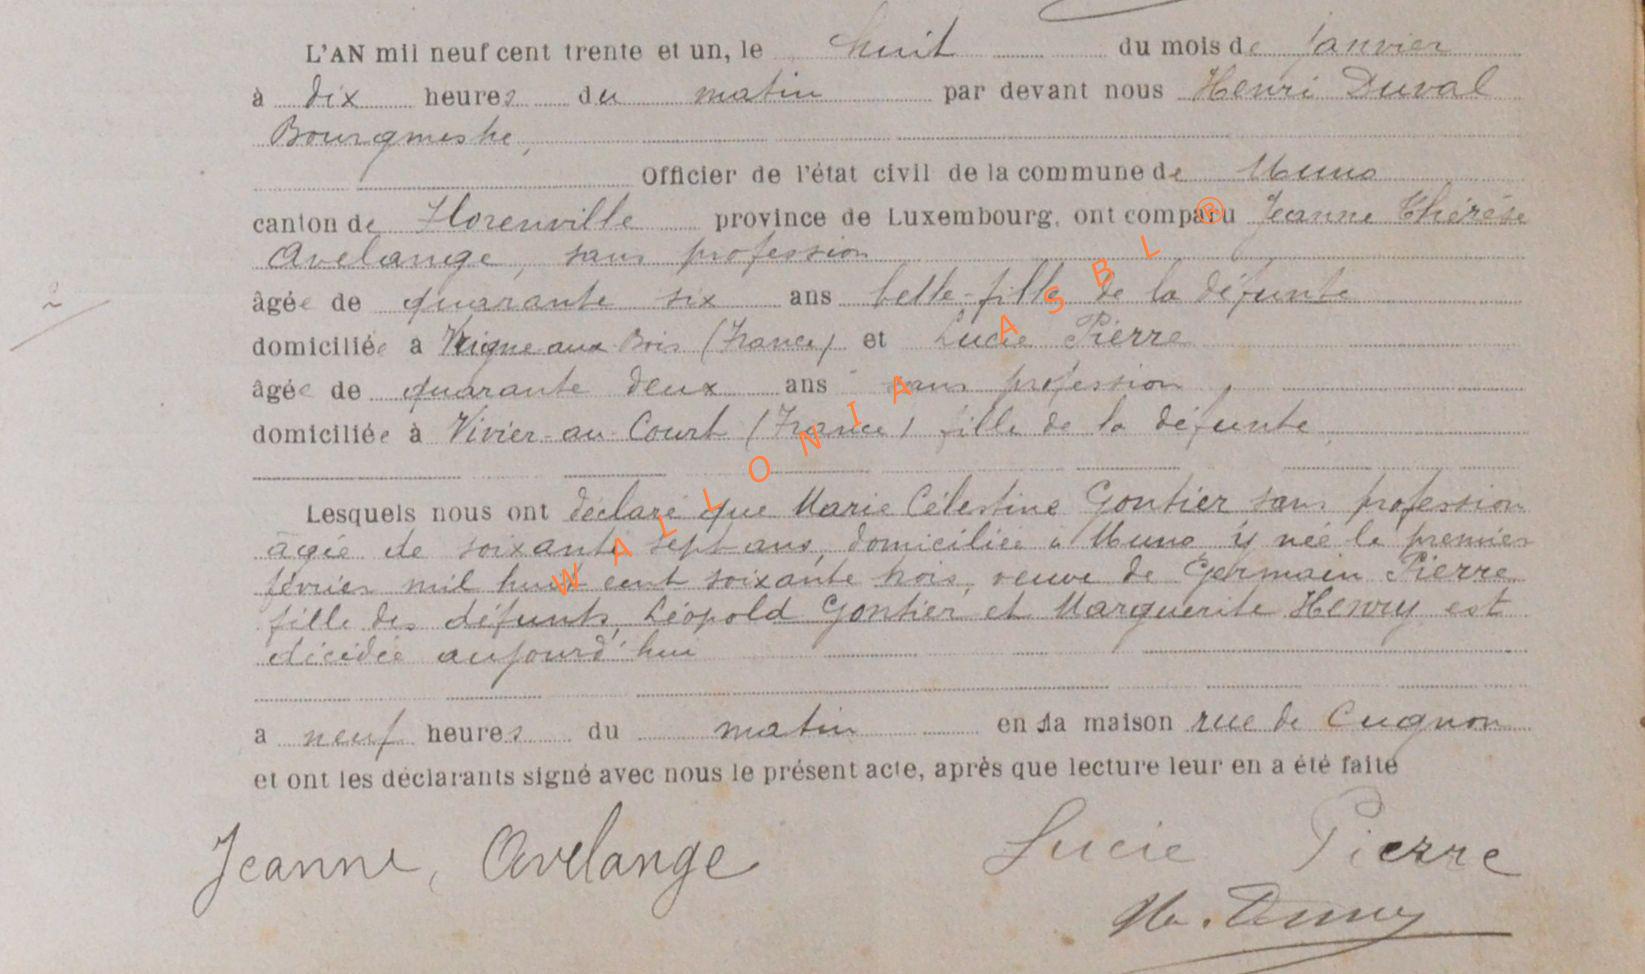 L'AN mil neuf cent trente et un, le huit du mois de Janvier
à dix heures du matin par devant nous Henri Duval
Bourgmestre,
Officier de l'état civil de la commune de Muno
canton de Florenville province de Luxembourg, ont comparu Jeanne Thérèse
Avelange, sans profession
âgée de quarante six ans belle-fille de la défunte
domiciliée à Vrigne aux Bois (France) et Lucie Pierre
âgée de quarante deux ans sans profession,
domiciliée à Vivier-au-Court (France) fille de la défunte,
Lesquels nous ont déclaré que Marie Célestine Gontier sans profession
âgée de soixante sept ans, domiciliée à Muno, y née le premier
février mil huit cent soixante trois, veuve de Germain Pierre
fille des défunts, Léopold Gontier et Marguerite Henry est
décédée aujourd'hui
à neuf heures du matin en sa maison rue de Cugnon
et ont les déclarants signé avec nous le présent acte, après que lecture leur en a été faite
Jeanne, Avelange Lucie Pierre
WALLONIA ASBL ®